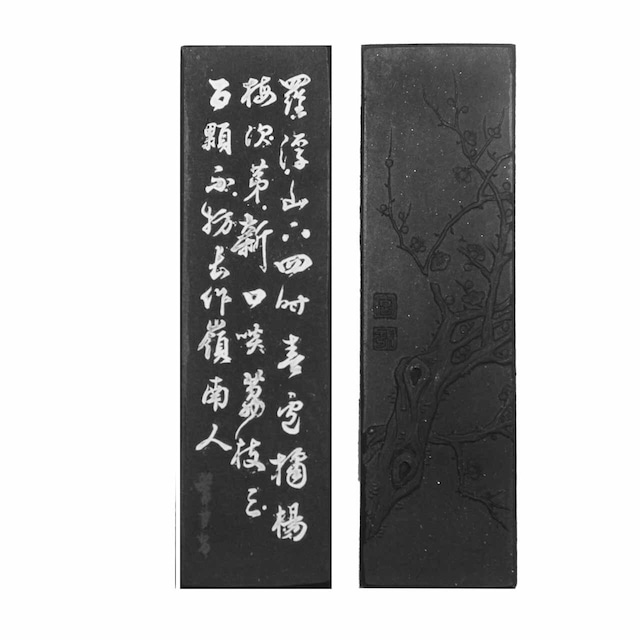 羅浮山下四時春盧橘楊
梅次第新日啖荔枝三
百顆不妨長作嶺南人